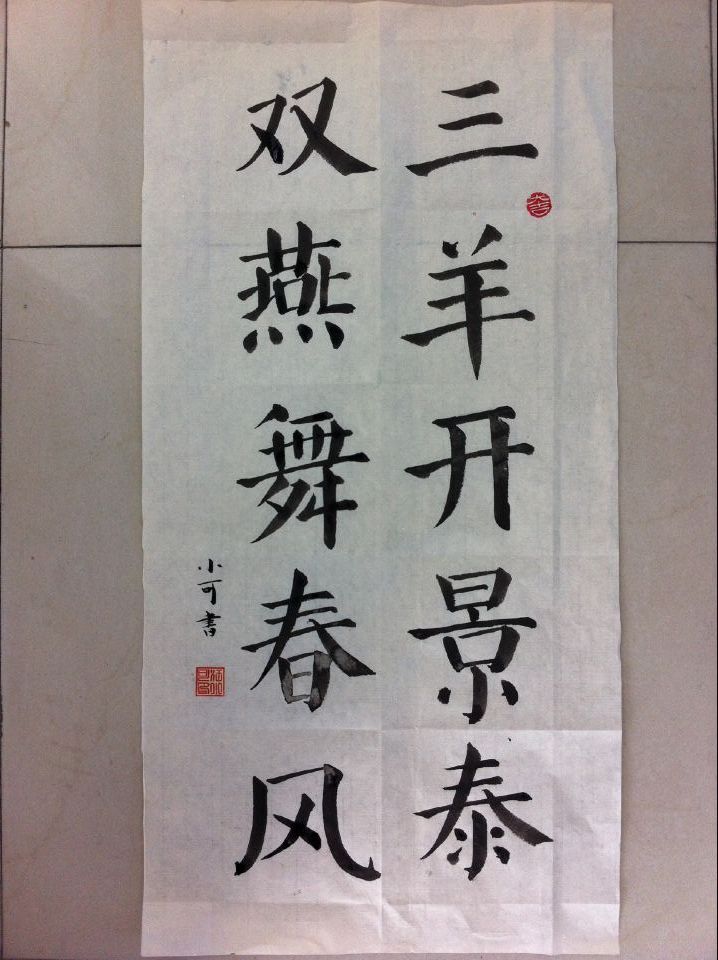 三羊开景泰
双燕舞春风
小可書